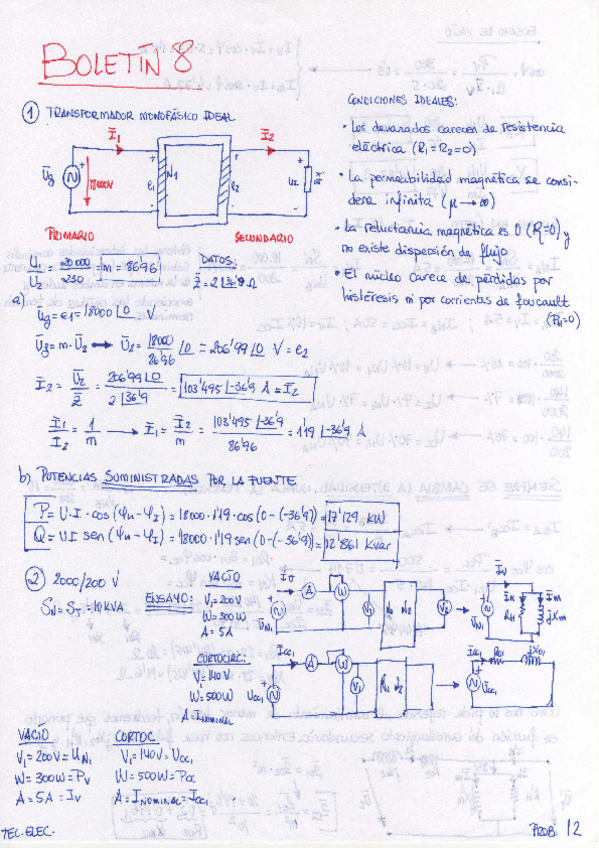 BOLETÍN 8
① TRANSFORMADOR MONOFÁSICO IDEAL
CONDICIONES IDEALES:
• Los devanados carecen de resistencia
eléctrica (R₁=R₂=0)
• La permeabilidad magnética se consi-
dera infinita (μ→∞)
• La reluctancia magnética es 0 (R=0) y
no existe dispersión de flujo
• El núcleo carece de pérdidas por
histéresis ni por corrientes de foucault
Ī₁ Ī₂
Ūg 18000V + - e₁ N₁ e₂ + -
PRIMARIO SECUNDARIO
U₁/U₂ = 20000/230 = m = 86'96
DATOS:
z̄ = 2∠36'9 Ω
a) Ūg = e₁ = 18000∠0 V
Ūg = m·Ū₂ → Ū₂ = 18000/86'96 ∠0 = 206'99∠0 V = e₂
Ī₂ = Ū₂/z̄ = 206'99∠0 / 2∠36'9 = 103'495∠-36'9 A = Ī₂
Ī₁/Ī₂ = 1/m → Ī₁ = Ī₂/m = 103'495∠-36'9 / 86'96 = 1'19∠-36'9 A
b) POTENCIAS SUMINISTRADAS POR LA FUENTE
P = U·I·cos(φu-φI) = 18000·1'19·cos(0-(-36'9)) = 17'129 kW
Q = U·I sen(φu-φI) = 18000·1'19 sen(0-(-36'9)) = 12'861 kvar
② 2000/200 V
SN = ST = 10 KVA
ENSAYO:
VACÍO
V₁=200V
W=300W
A=5A
CORTOCIRC:
V=140V
W=500W
A=INOMINAL
VACÍO
V₁=200V=UN₁
W=300W=PV
A=5A=IV
CORTOC.
V₁=140V=UCC₁
W=500W=PCC
A=INOMINAL=ICC₁
TEC. ELEC.
PROB. 12